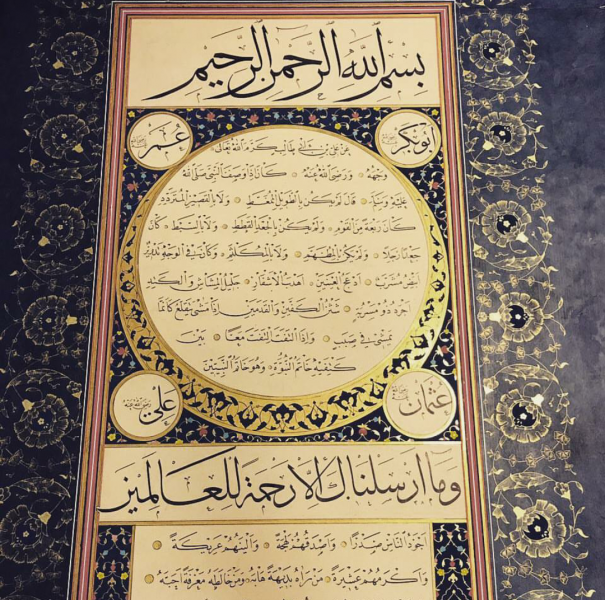 بسم الله الرحمن الرحيم
ابوبكر
عمر
عن علي بن ابي طالب كرم الله تعالى
وجهه ورضي الله عنه كان اذا وصف النبي صلى الله
عليه وسلم قال لم يكن بالطويل الممغط ولا بالقصير المتردد
كان ربعة من القوم ولم يكن بالجعد القطط ولا بالسبط كان
جعدا رجلا ولم يكن بالمطهم ولا بالمكلثم وكان في الوجه تدوير
ابيض مشرب ادعج العينين اهدب الاشفار جليل المشاش والكتد
اجرد ذو مسربة شثن الكفين والقدمين اذا مشى يتقلع كانما
يمشي في صبب واذا التفت التفت معا بين
كتفيه خاتم النبوة وهو خاتم النبيين
عثمان
علي
وما ارسلناك الا رحمة للعالمين
اجود الناس صدرا واصدقهم لهجة والينهم عريكة
واكرمهم عشيرة من رآه بديهة هابه ومن خالطه معرفة احبه